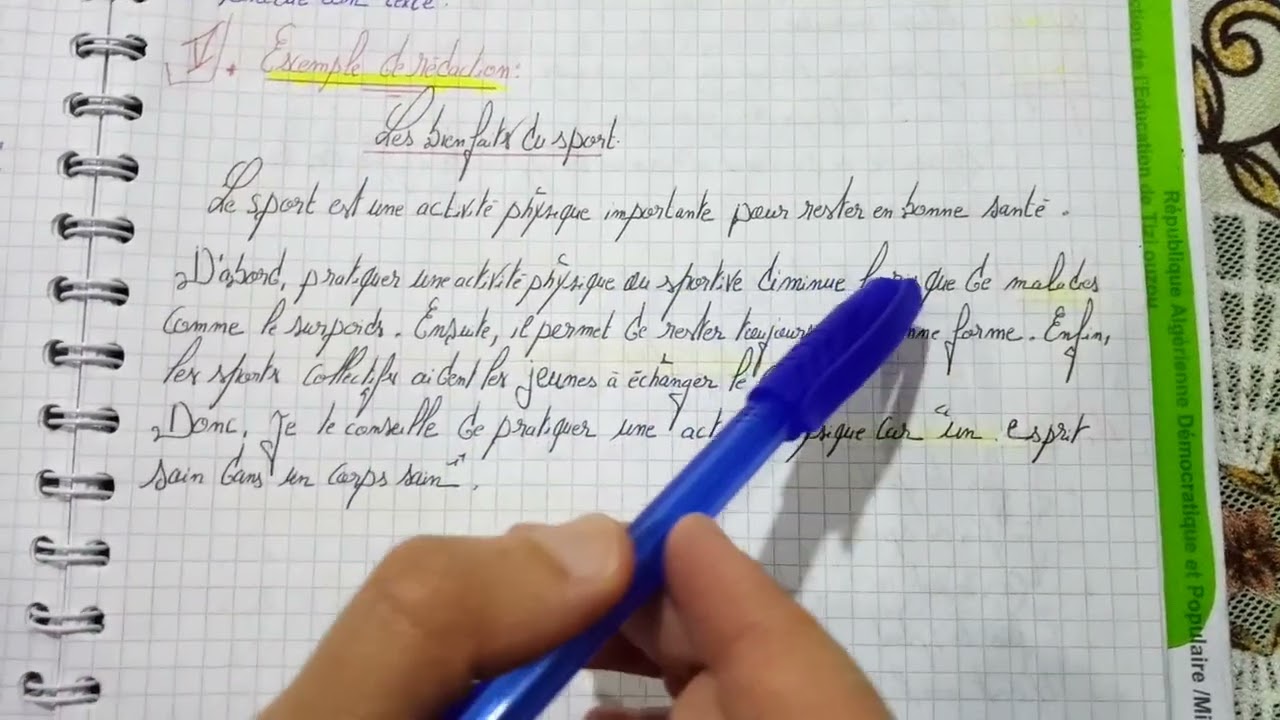 V. Exemple de rédaction:
Les bienfaits du sport.
Le sport est une activité physique importante pour rester en bonne santé.
D'abord, pratiquer une activité physique ou sportive diminue que de maladies
comme le surpoids. Ensuite, il permet de rester toujours forme. Enfin,
les sports collectifs aident les jeunes à échanger le
Donc, Je te conseille de pratiquer une car "un esprit
sain dans un corps sain".
ction de l'Education de Tizi ouzou
République Algérienne Démocratique et Populaire /Mi